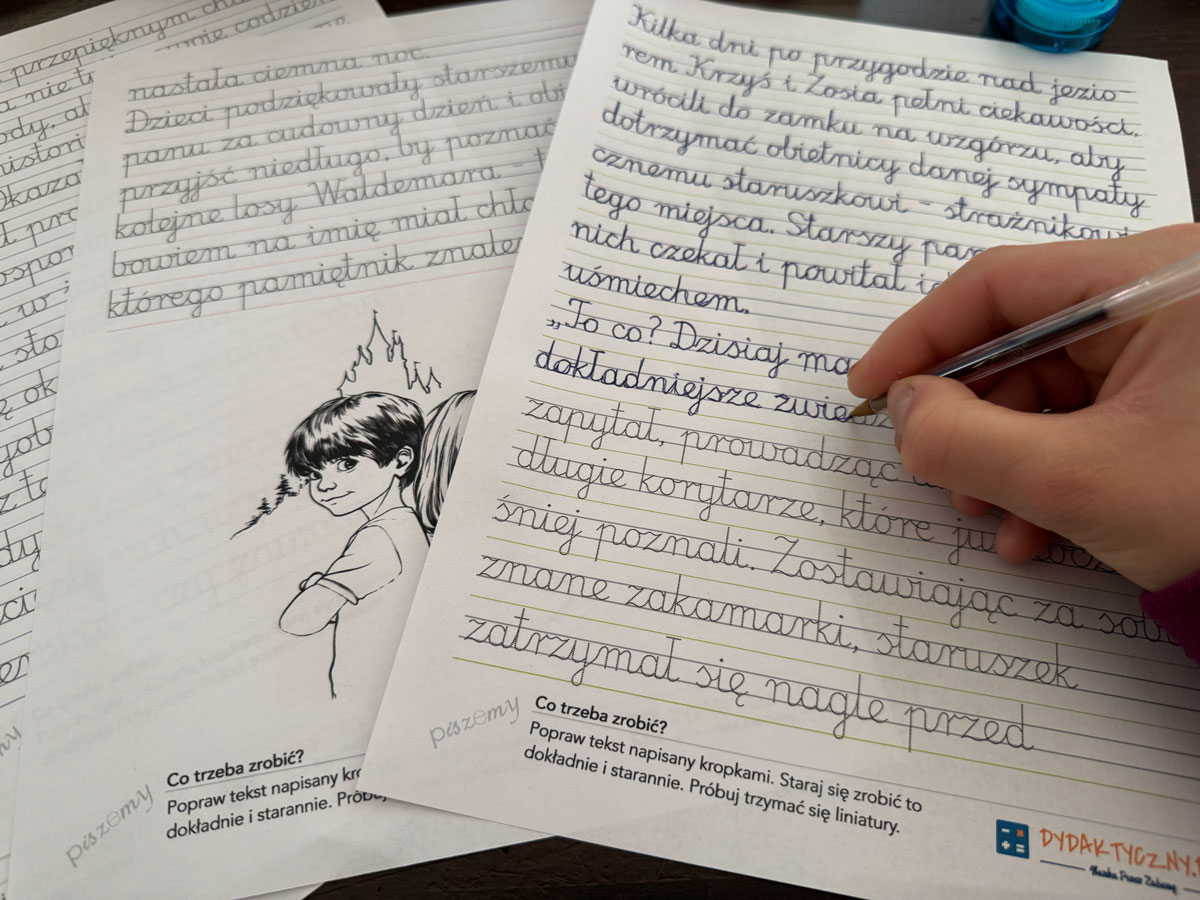 przepięknym
codzien
a nie
ody, al
histori
Okaza
ł pro
ospor
w i
sto
ę ok
gobr
z to
dy
nastała ciemna noc.
Dzieci podziękowały starszemu
panu za cudowny dzień i obi
przyjść niedługo, by poznać
kolejne losy Waldemara –
bowiem na imię miał chło
którego pamiętnik znale
piszemy
Co trzeba zrobić?
Popraw tekst napisany kro
dokładnie i starannie. Próbuj
Kilka dni po przygodzie nad jezio-
rem Krzyś i Zosia pełni ciekawości,
wrócili do zamku na wzgórzu, aby
dotrzymać obietnicy danej sympaty
cznemu staruszkowi – strażnikowi
tego miejsca. Starszy pan
nich czekał i powitał ic
uśmiechem.
„To co? Dzisiaj ma
dokładniejsze zwiedz
zapytał, prowadząc
długie korytarze, które ju
śniej poznali. Zostawiając za sob
znane zakamarki, staruszek
zatrzymał się nagle przed
piszemy
Co trzeba zrobić?
Popraw tekst napisany kropkami. Staraj się zrobić to
dokładnie i starannie. Próbuj trzymać się liniatury.
DYDAKTYCZNY.
Nauka Przez Zabawę